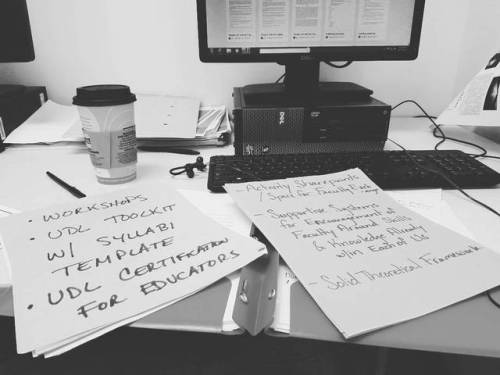 • WORKSHOPS
• UDL TOOLKIT
W/ SYLLABI
TEMPLATE
• UDL CERTIFICATION
FOR EDUCATORS
- Activity Sharepoints
/ Space for Faculty Each
- Supportive Systems
for Encouragement of
Faculty Around Skills
& Knowledge Already
w/in Each of Us
- Solid Theoretical Framework
DELL